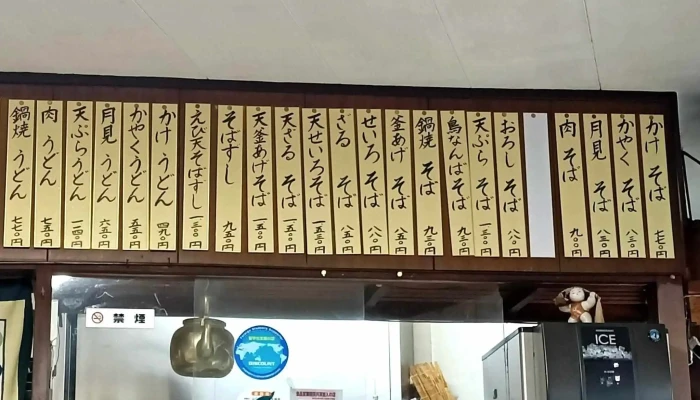 かけ そば 七七〇円
かやく そば 八三〇円
月見 そば 八三〇円
肉 そば 九八〇円
おろし そば 八八〇円
天ぷら そば 一三一〇円
鳥なんばそば 九三〇円
鍋焼 そば 九三〇円
釜あげ そば 八八〇円
せいろ そば 八八〇円
ざる そば 八五〇円
天せいろそば 一五五〇円
天ざる そば 一五五〇円
天釜あげそば 一五五〇円
そばすし 九五〇円
えび天そばすし 一三〇〇円
かけ うどん 四九〇円
かやくうどん 五五〇円
月見 うどん 六五〇円
天ぷらうどん 一一四〇円
肉 うどん 七五〇円
鍋焼 うどん 七七〇円
禁煙
ICE